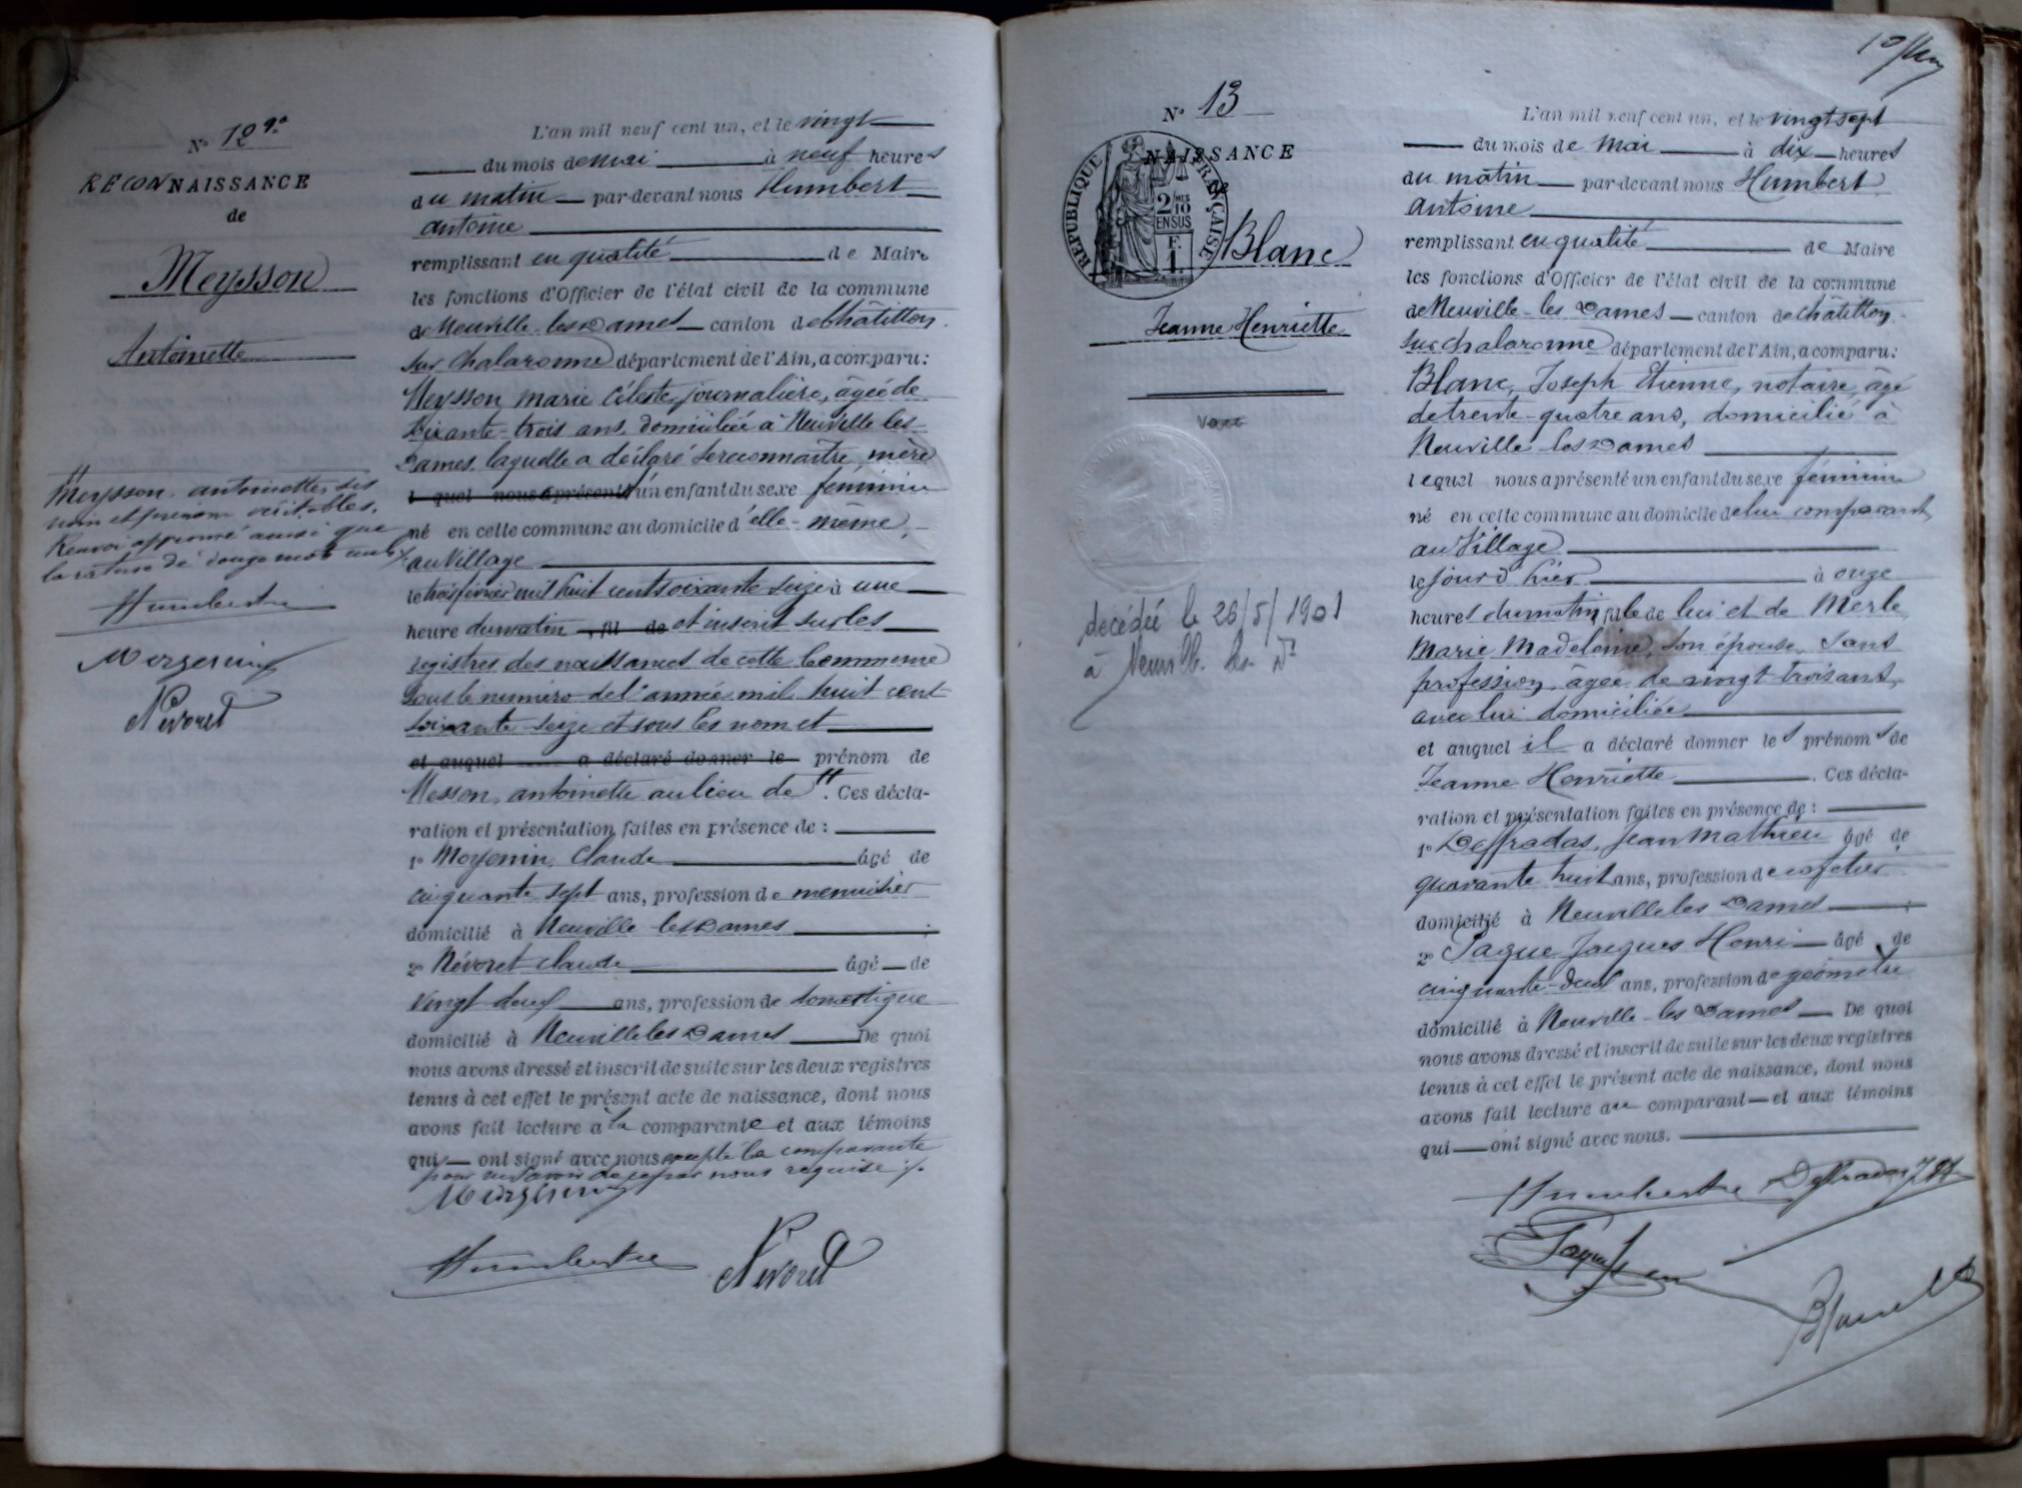 N° 12 9°
RECONNAISSANCE
de
Meysson
Antoinette
Meysson antoinette ses
nom et prenom véritables.
Renvoi approuvé ainsi que
la rature de mots nuls
Humbert
Nevoret
L'an mil neuf cent un, et le vingt
du mois de mai à neuf heures
du matin par-devant nous Humbert
antoine
remplissant en qualité de Maire
les fonctions d'Officier de l'état civil de la commune
de Neuville-les-Dames canton de Châtillon
sur Chalaronne département de l'Ain, a comparu:
Meysson marie Céleste, journalière, âgée de
soixante-trois ans, domiciliée à Neuville les
Dames, laquelle a déclaré se reconnaître mère
l quel nous a présenté un enfant du sexe féminin
né en cette commune au domicile d'elle-même,
au Village
le trois février mil huit cent soixante seize à une
heure du matin , fil de et inscrit sur les
registres des naissances de cette Commune
sous le numéro de l'année mil huit cent
soixante-seize et sous les nom et
et auquel a déclaré donner le prénom de
Messon, antoinette au lieu de #. Ces décla-
ration et présentation faites en présence de :
1° Claude âgé de
cinquante sept ans, profession de menuisier
domicilié à Neuville les Dames ;
2° Névoret Claude âgé de
Vingt ans, profession de domestique
domicilié à Neuville les Dames De quoi
nous avons dressé et inscrit de suite sur les deux registres
tenus à cet effet le présent acte de naissance, dont nous
avons fait lecture à la comparante et aux témoins
qui ont signé avec nous excepté la comparante
pour ne savoir de ce par nous requise ./.
Humbert
Nevoret
10
N° 13
NAISSANCE
de
RÉPUBLIQUE FRANÇAISE
2/10
EN SUS
F.
1.
Blanc
Jeanne Henriette
décédée le 28/5/1901
à Neuville les Ds
L'an mil neuf cent un, et le vingt sept
du mois de mai à dix heures
du matin par-devant nous Humbert
antoine
remplissant en qualité de Maire
les fonctions d'Officier de l'état civil de la commune
de Neuville-les Dames canton de châtillon-
sur chalaronne département de l'Ain, a comparu:
Blanc, Joseph Etienne, notaire, âgé
de trente-quatre ans, domicilié à
Neuville-les Dames
lequel nous a présenté un enfant du sexe féminin
né en cette commune au domicile de lui comparant
au Village
le jour d'hier à onze
heures du matin, fille de lui et de Merle
Marie Madeleine, son épouse, sans
profession, âgée de vingt trois ans,
avec lui domiciliée
et auquel il a déclaré donner les prénoms de
Jeanne Henriette . Ces décla-
ration et présentation faites en présence de :
1° Deffradas, Jean Mathieu âgé de
quarante huit ans, profession de cafetier
domicilié à Neuville les Dames ;
2° Paque Jacques Henri âgé de
cinquante-deux ans, profession de géomètre
domicilié à Neuville-les Dames De quoi
nous avons dressé et inscrit de suite sur les deux registres
tenus à cet effet le présent acte de naissance, dont nous
avons fait lecture au comparant et aux témoins
qui ont signé avec nous.
Humbert Deffradas J M
Paque
Blanc